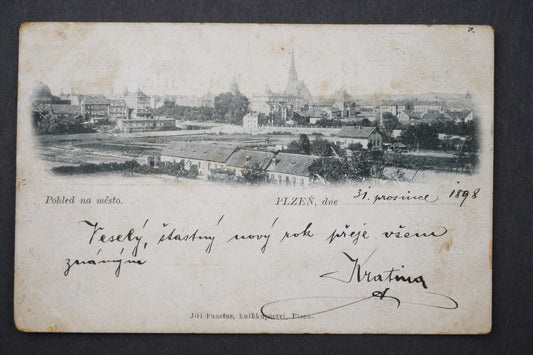 Pohled na město. PLZEŇ, dne 31. prosince 1898
Veselý, šťastný nový rok přeje všem
známým
Kratina
Jiří Faustus, knihkupectví, Plzeň.